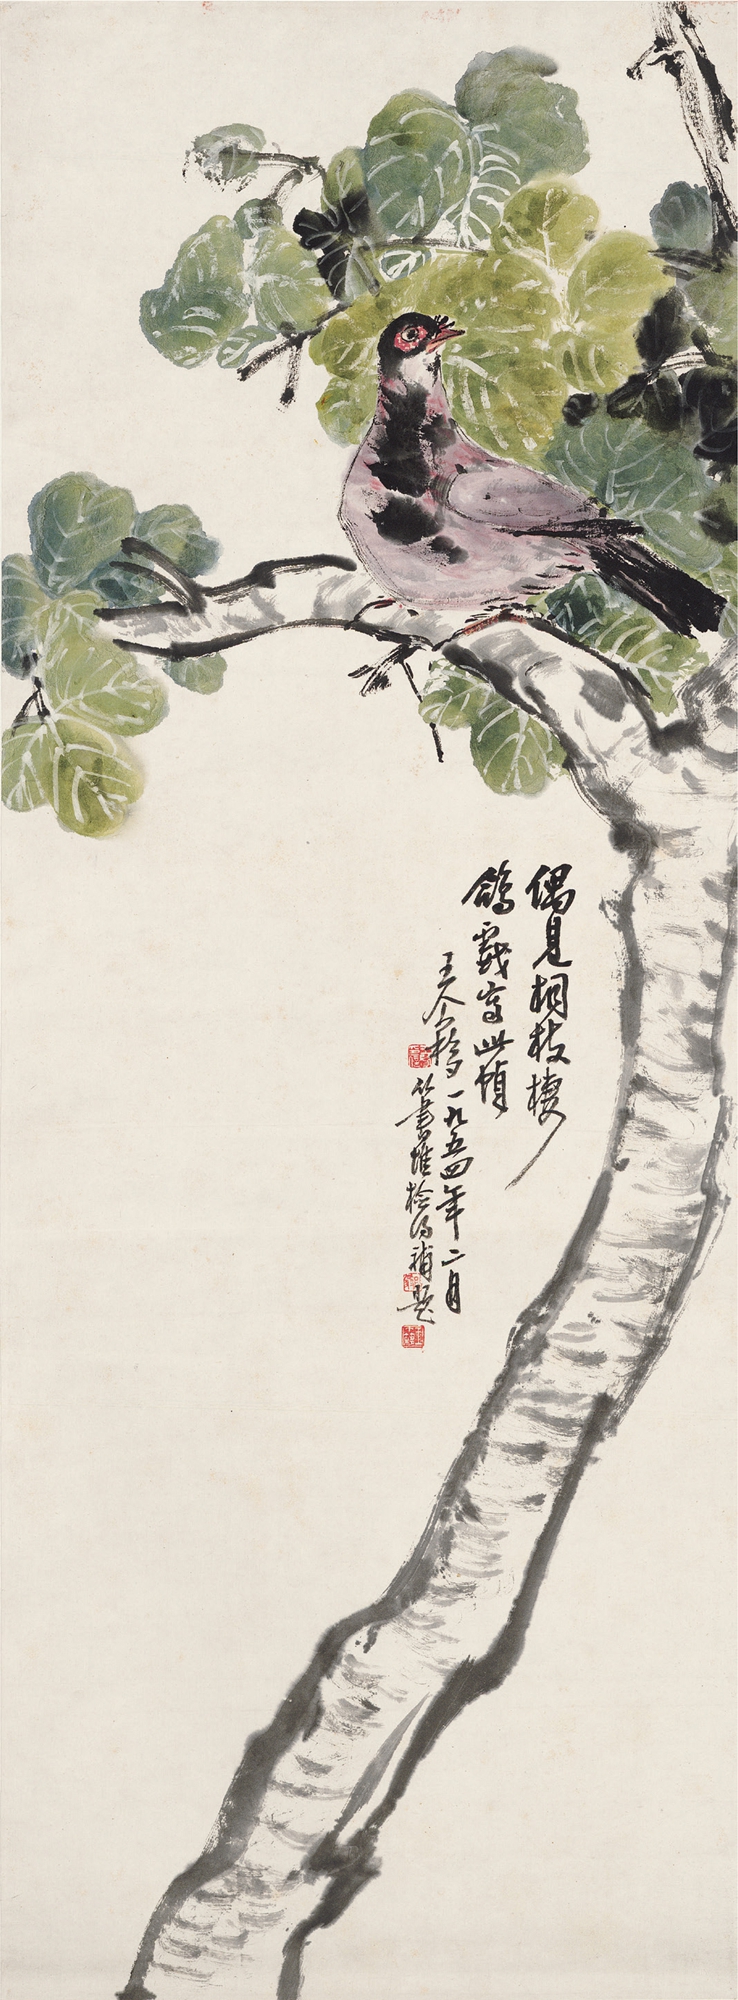 偶見桐枝棲
鴿戲寫此幀
王个簃一九五四年二月
書堆檢得補題